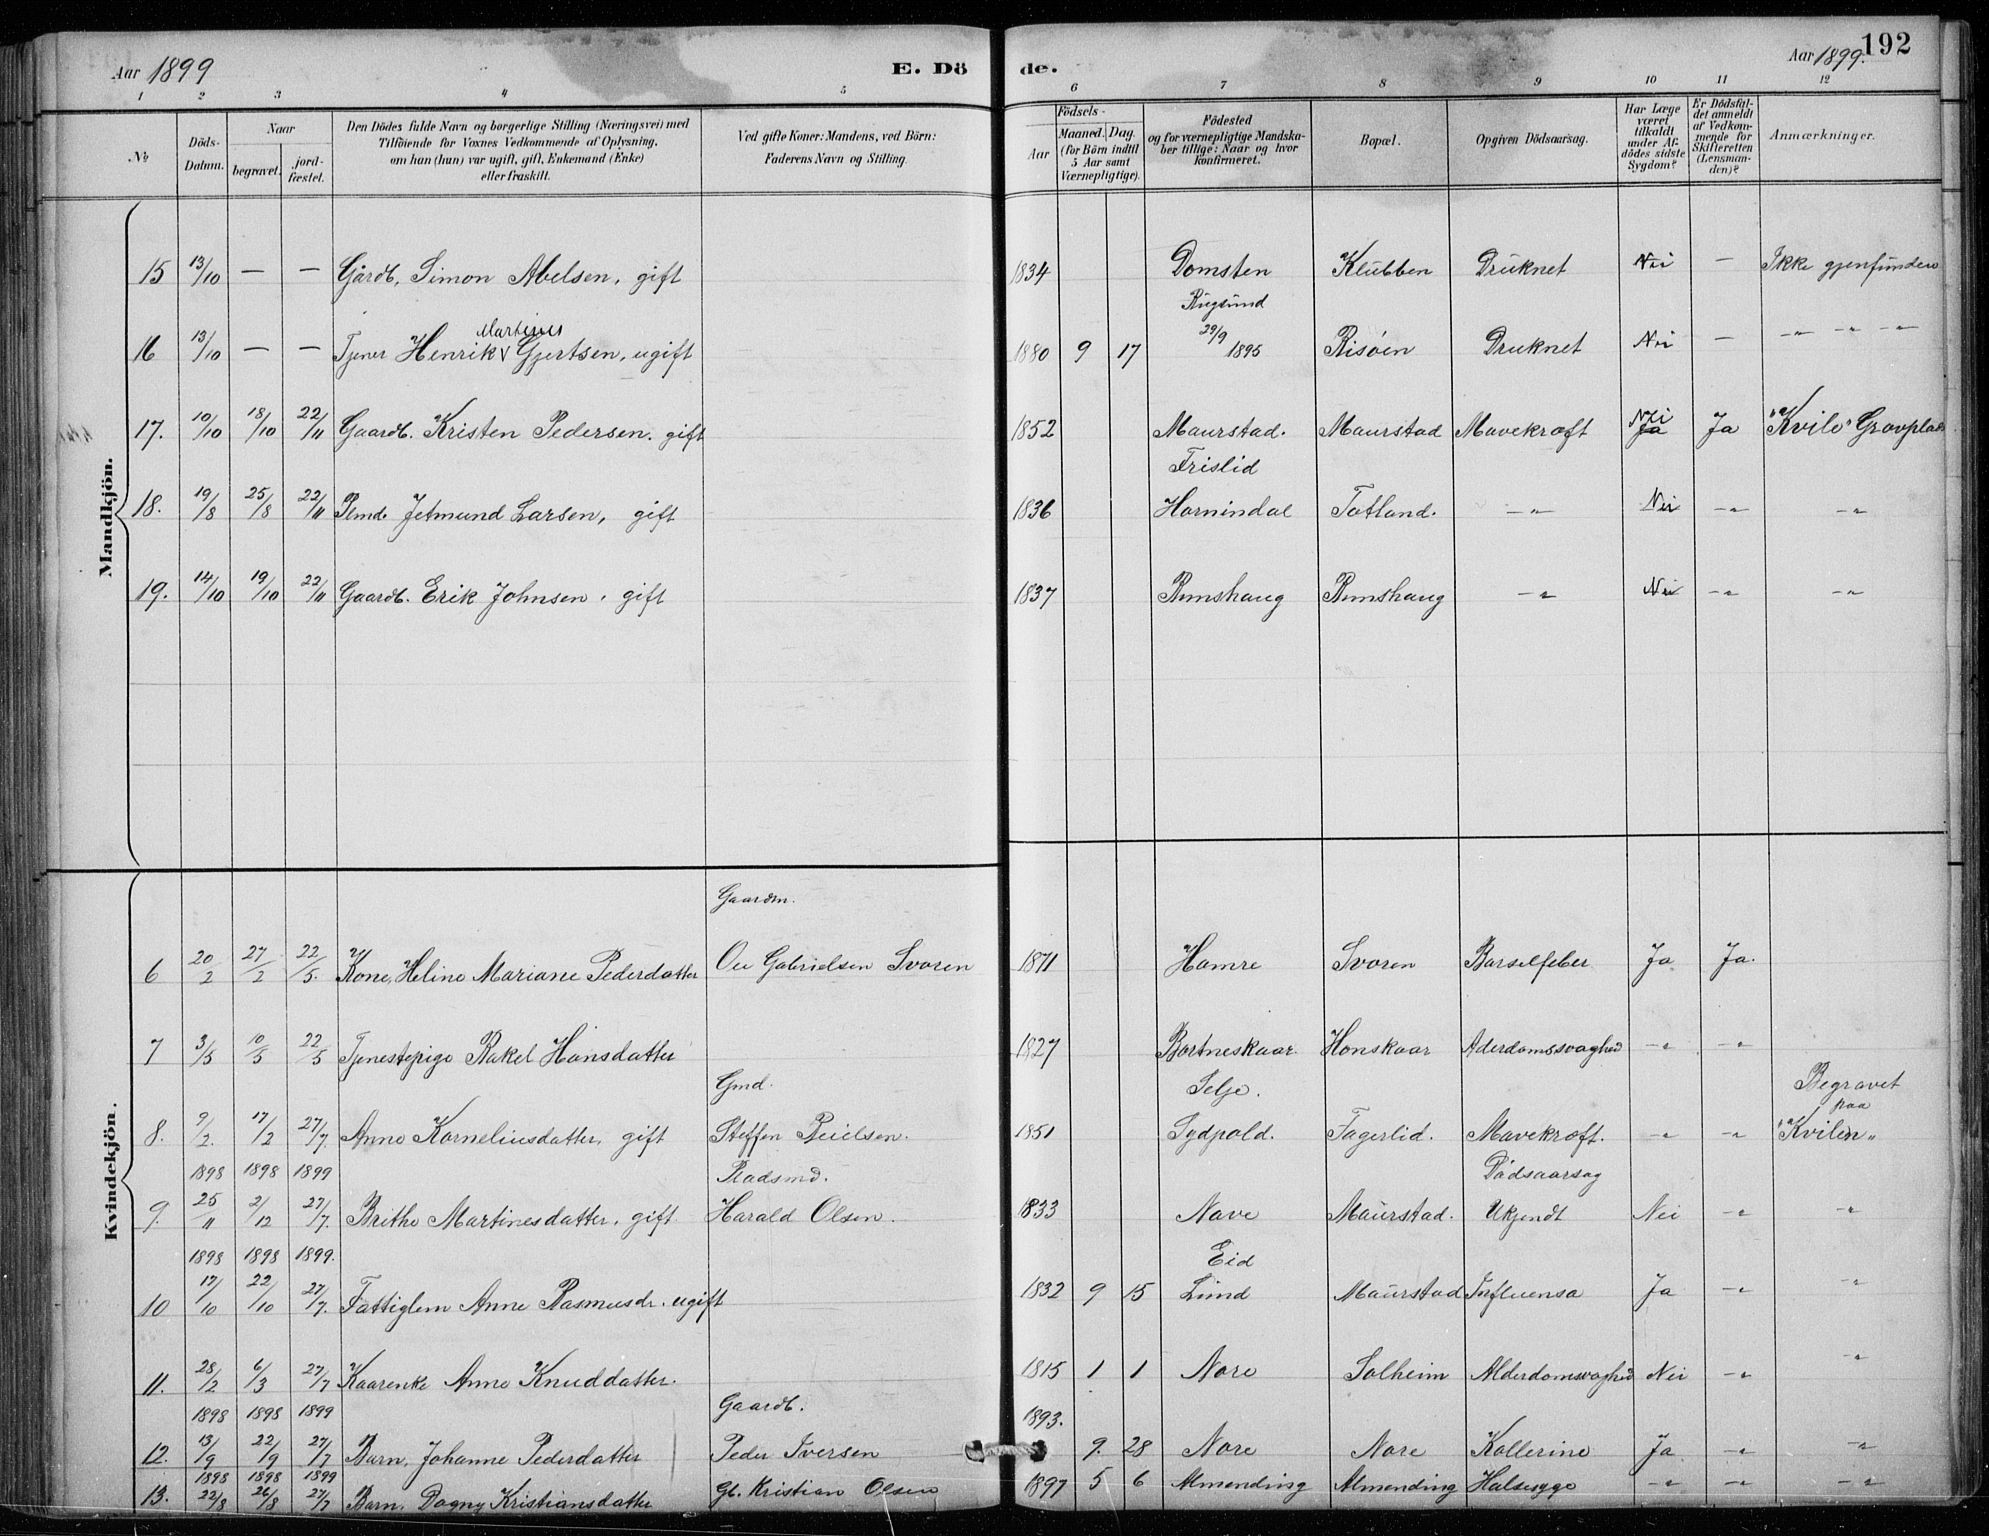 Aar 1899
E. Dö
de.
Aar 1899.
192
1 2 3 4 5 6 7 8 9 10 11 12
№
Döds-Datum.
Naar
begravet.
jord-fæstet.
Den Dödes fulde Navn og borgerlige Stilling (Næringsvei) med
Tilföiende for Voxnes Vedkommende af Oplysning,
om han (hun) var ugift, gift, Enkemand (Enke)
eller fraskilt.
Ved gifte Koner: Mandens, ved Börn:
Faderens Navn og Stilling.
Födsels-
Aar
Maaned. Dag.
(for Börn indtil
5 Aar samt
Værnepligtige).
Födested
og for værnepligtige Mandska-
ber tillige: Naar og hvor
konfirmeret.
Bopæl.
Opgiven Dödsaarsag.
Har Læge
været
tilkaldt
under Af-
dödes sidste
Sygdom?
Er Dödsfal-
det anmeldt
af Vedkom-
mende for
Skifteretten
(Lensman-
den)?
Anmærkninger.
Mandkjön.
15 13/10 — — Gårdb. Simon Abelsen, gift 1834 Domsten Klubben Druknet Nei — Ikke gjenfunden
Rugsund
Martinus
16 13/10 — — Tjener Henrik Gjertsen, ugift 1880 9 17 29/9 1895 Risöen Druknet Nei — -"- -"- -"-
Nei
17. 10/10 18/10 22/11 Gaardb. Kristen Pedersen. gift 1852 Maurstad. Maurstad Mavekræft Ja Ja "Kvile" Gravplads
Frislid
18. 19/8 25/8 22/11 Plmd. Jetmund Larsen, gift 1836 Hornindal Totland. -"- Nei -"- -"-
19. 14/10 19/10 22/11 Gaardb. Erik Johnsen, gift 1837 Rimshaug Rimshaug -"- Nei -"- -"-
Kvindekjön.
Gaardm.
6 20/2 27/2 22/5. Kone, Heline Mariane Pederdatter Ole Gabrielsen Svoren 1871 Hamre Svoren Barselfeber Ja Ja.
7 3/5 10/5 22/5 Tjenestepige Rakel Hansdatter 1827 Bortneskaar. Honskaar Alderdomssvaghed -"- -"-
Gmd.
Selje.
Begravet
paa
8. 9/2. 17/2 27/7. Anne Korneliusdatter, gift Steffen 1851 Sydpold. Fagerlid. Mavekræft. -"- -"- "Kvilen"
1898 1898 1899 Pladsmd. Dödsaarsag
9. 25/11 2/12 27/7. Brithe Martinesdatter, gift. Harald Olsen. 1833 Nave Maurstad. Ukjendt Nei -"- -"-
1898 1898 1899. Eid
10 17/10 22/10 27/7. Fattiglem Anne Rasmusdr. ugift 1832 9 15 Lund Maurstad Influensa Ja -"- -"-
11. 28/2 6/3 27/7 Kaarenke Anne Knuddatter. 1815 1 1 Nore Solheim Alderdomsvaghed Nei -"- -"-
1898 1898 1899 Gaardb. 1893.
12. 13/9 22/9 27/7 Barn, Johanne Pederdatter Peder Iversen 9. 28 Nore Nore Kollerine Ja -"- -"-
1898 1898 1899
13. 22/8 26/8 27/7 Barn, Dagny Kristiansdatter Gb. Kristian Olsen 1897 5 6 Almending Almending Halssyge -"- -"- -"-